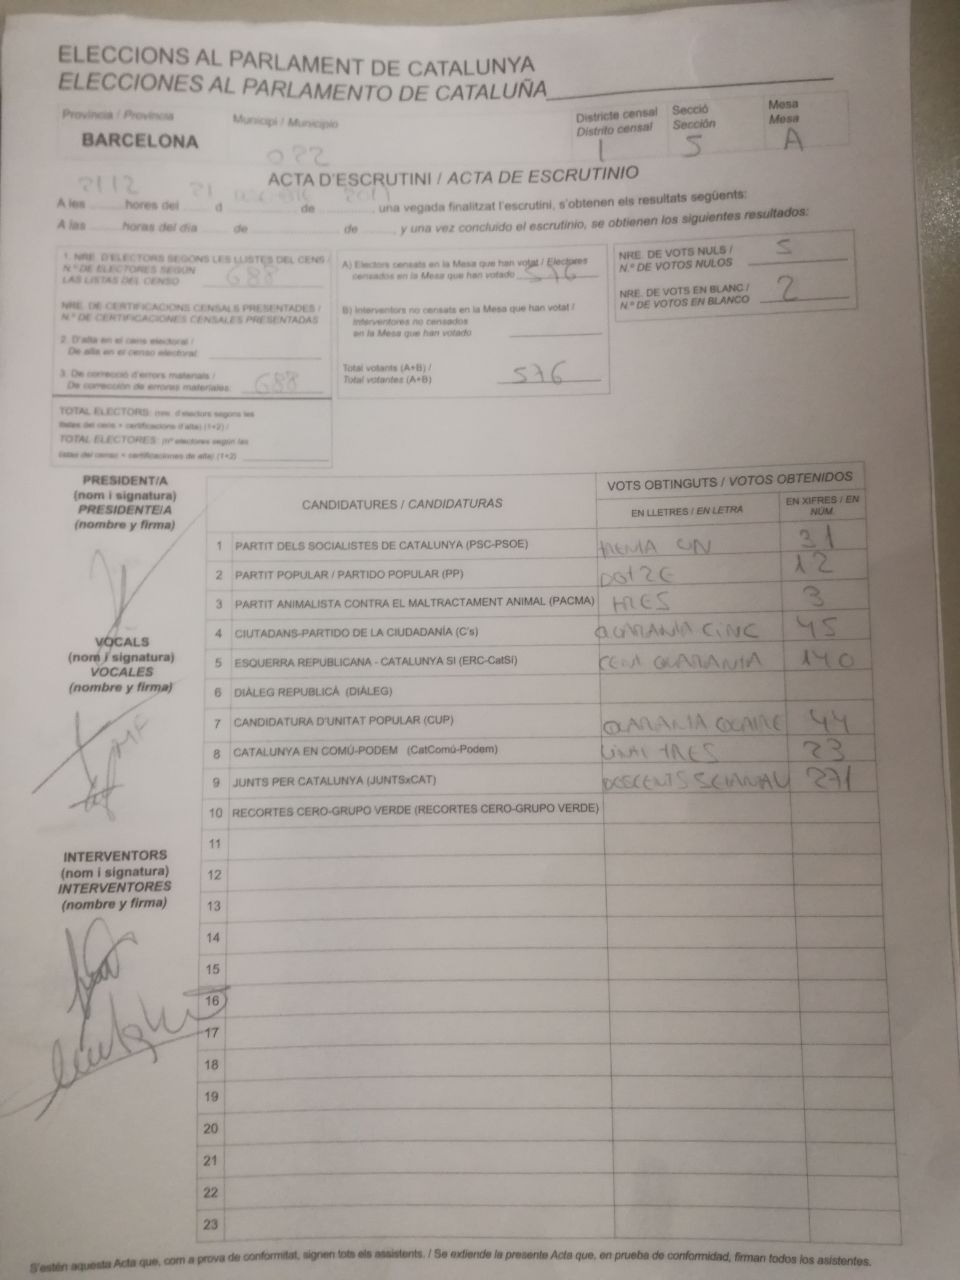 ELECCIONS AL PARLAMENT DE CATALUNYA
ELECCIONES AL PARLAMENTO DE CATALUÑA
Província / Provincia
BARCELONA
Municipi / Municipio
022
Districte censal
Distrito censal
1
Secció
Sección
5
Mesa
Mesa
A
ACTA D'ESCRUTINI / ACTA DE ESCRUTINIO
A les 2112 hores del 21 d de 2017, una vegada finalitzat l'escrutini, s'obtenen els resultats següents:
A las horas del día de de , y una vez concluido el escrutinio, se obtienen los siguientes resultados:
1. NRE. D'ELECTORS SEGONS LES LLISTES DEL CENS /
N.º DE ELECTORES SEGÚN
LAS LISTAS DEL CENSO 688
NRE. DE CERTIFICACIONS CENSALS PRESENTADES /
N.º DE CERTIFICACIONES CENSALES PRESENTADAS
2. D'alta en el cens electoral /
De alta en el censo electoral:
3. De correcció d'errors materials /
De corrección de errores materiales: 688
TOTAL ELECTORS: (nre. d'electors segons les
llistes del cens + certificacions d'alta) (1+2) /
TOTAL ELECTORES: (nº electores según las
listas del censo + certificaciones de alta) (1+2)
A) Electors censats en la Mesa que han votat / Electores
censados en la Mesa que han votado 576
B) Interventors no censats en la Mesa que han votat /
Interventores no censados
en la Mesa que han votado
Total votants (A+B) /
Total votantes (A+B) 576
NRE. DE VOTS NULS /
N.º DE VOTOS NULOS 5
NRE. DE VOTS EN BLANC /
N.º DE VOTOS EN BLANCO 2
PRESIDENT/A
(nom i signatura)
PRESIDENTE/A
(nombre y firma)
VOCALS
(nom i signatura)
VOCALES
(nombre y firma)
INTERVENTORS
(nom i signatura)
INTERVENTORES
(nombre y firma)
CANDIDATURES / CANDIDATURAS
VOTS OBTINGUTS / VOTOS OBTENIDOS
EN LLETRES / EN LETRA
EN XIFRES / EN NÚM.
1 PARTIT DELS SOCIALISTES DE CATALUNYA (PSC-PSOE) TRENTA UN 31
2 PARTIT POPULAR / PARTIDO POPULAR (PP) DOTZE 12
3 PARTIT ANIMALISTA CONTRA EL MALTRACTAMENT ANIMAL (PACMA) TRES 3
4 CIUTADANS-PARTIDO DE LA CIUDADANÍA (C's) QUARANTA CINC 45
5 ESQUERRA REPUBLICANA - CATALUNYA SI (ERC-CatSí) CENT QUARANTA 140
6 DIÀLEG REPUBLICÀ (DIÀLEG)
7 CANDIDATURA D'UNITAT POPULAR (CUP) QUARANTA QUATRE 44
8 CATALUNYA EN COMÚ-PODEM (CatComú-Podem) VINT TRES 23
9 JUNTS PER CATALUNYA (JUNTSxCAT) DOSCENTS 271
10 RECORTES CERO-GRUPO VERDE (RECORTES CERO-GRUPO VERDE)
11
12
13
14
15
16
17
18
19
20
21
22
23
S'estén aquesta Acta que, com a prova de conformitat, signen tots els assistents. / Se extiende la presente Acta que, en prueba de conformidad, firman todos los asistentes.